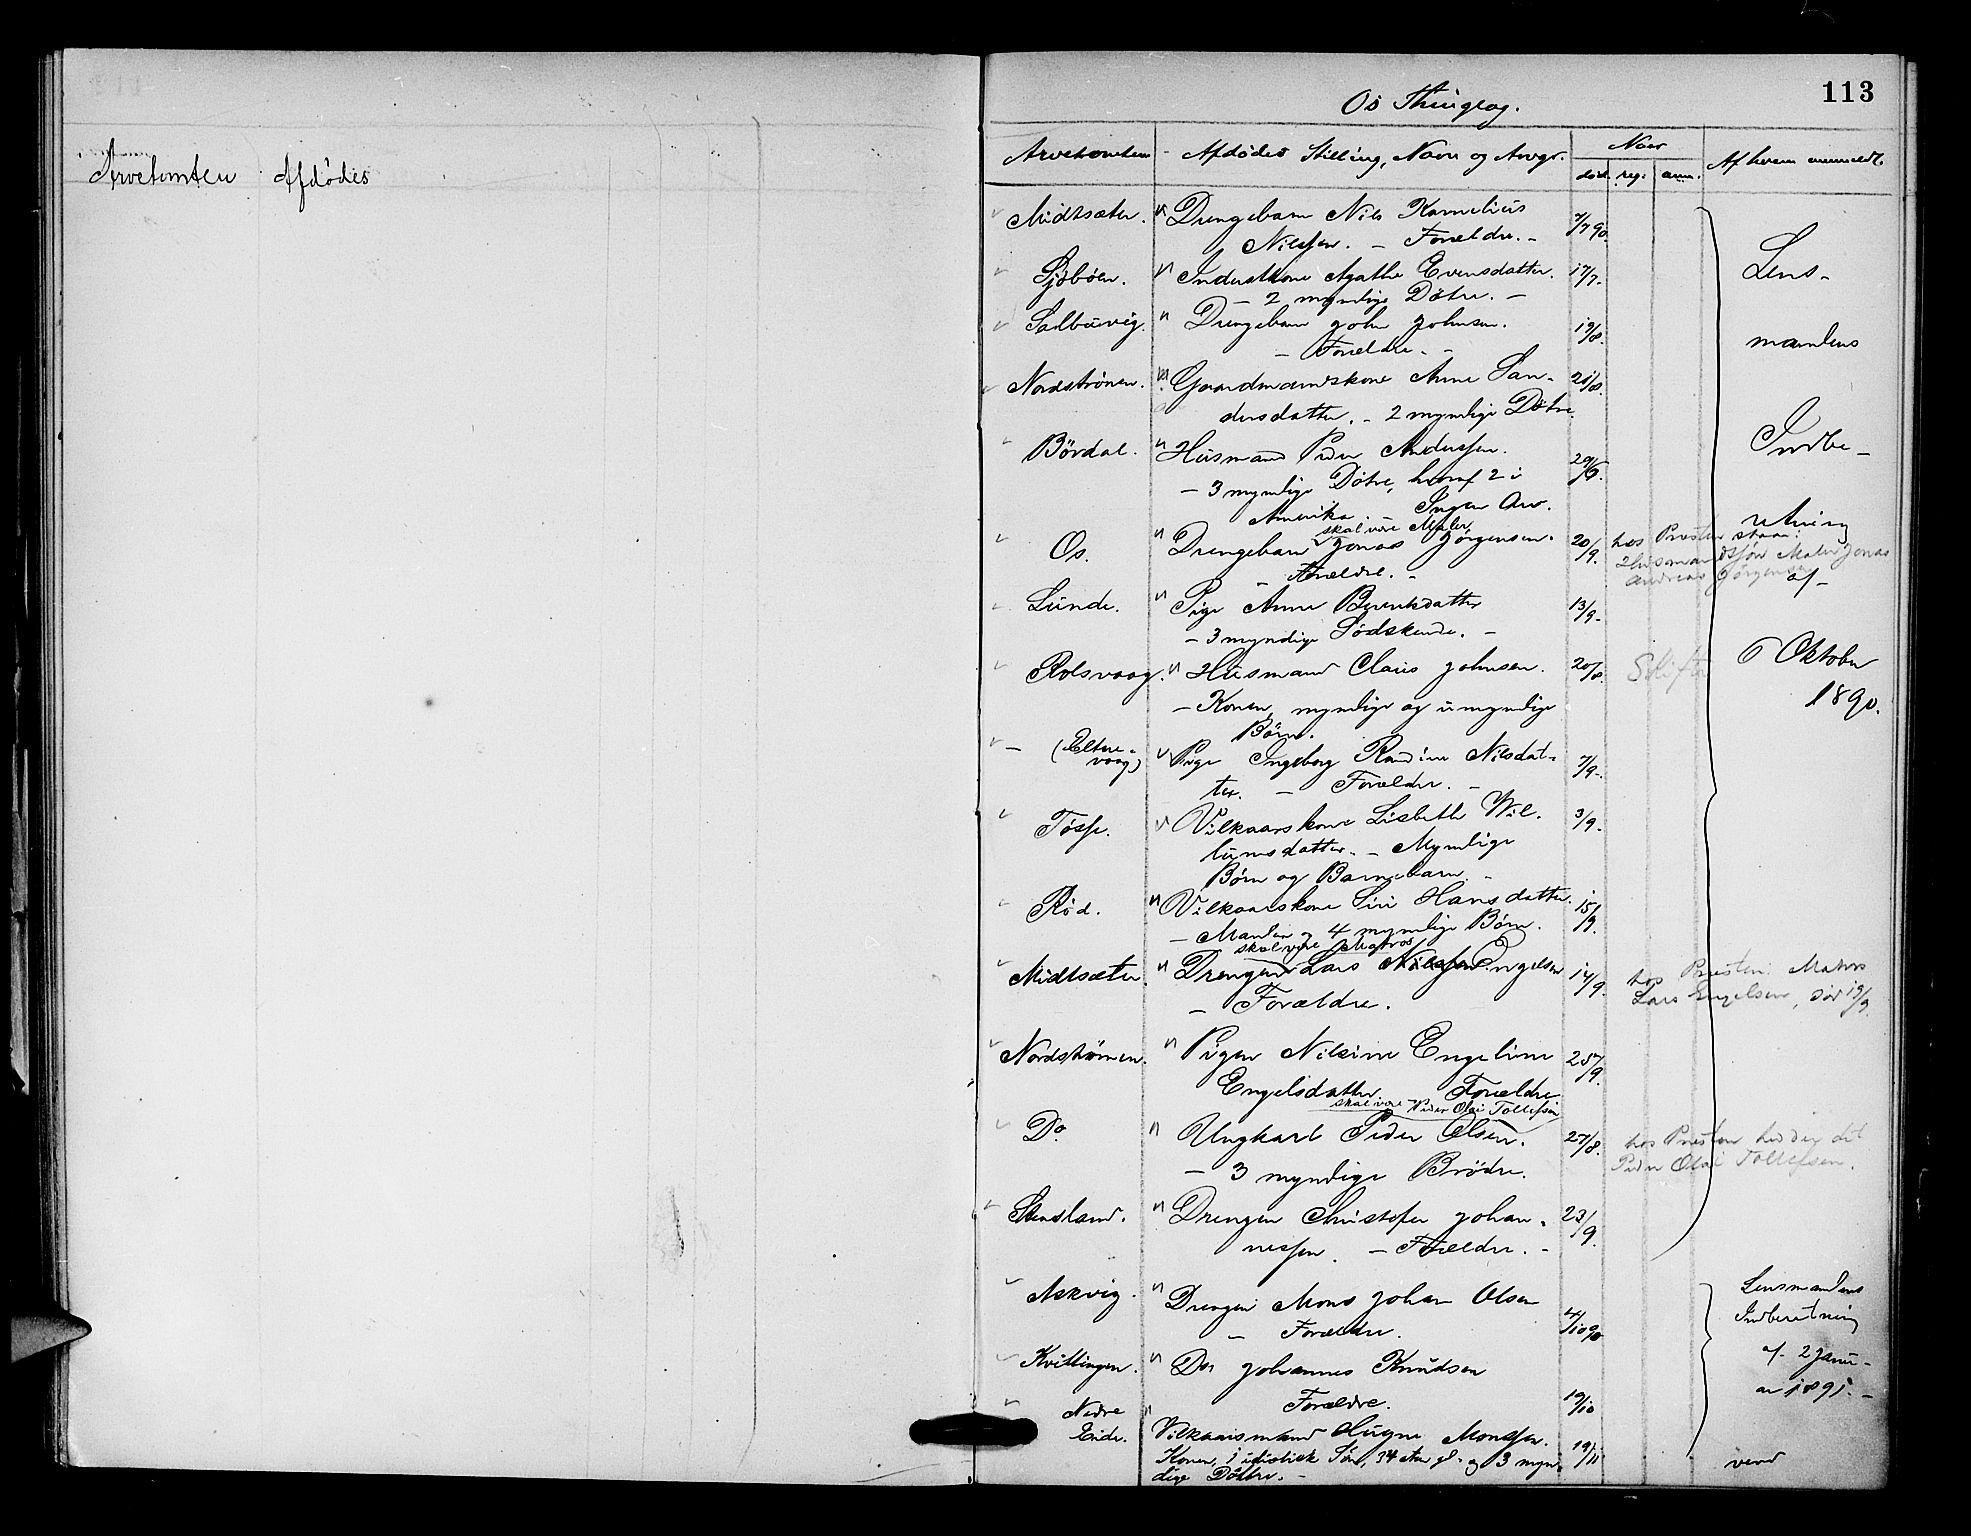 Arvetomten Afdødes
113
Os Thinglag.
Arvetomten Afdødes Stilling, Navn og Arvgr. Naar Af hvem anmeldt.
død reg: anm.
Midtsæter. Drengebarn Nils Kornelius 7/7 90.
Nilssen. – Forældre. –
Sjøbøen. Inderstkone Agathe Evensdatter. 17/7. Lens-
– 2 myndige Døtre. –
Drengebarn John Johnsen. 19/8. mandens
– Forældre. –
Nordstrønen. Gaardmandskone Anne San- 21/8.
dersdatter. – 2 myndige Døtre.
Bördal. Husmand Peder Anderssen. Indbe-
– 3 myndige Døtre, hvoraf 2 i
Amerika. – Ingen Arv. retning
skal være Maler
Os. Drengebarn Jonas Jørgensen. 20/9. hos Presten staar:
– Forældre. – Husmandssøn Maler Jonas
Andreas Jørgensen af
Lunde. Pige Anne Berentsdatter 13/9.
– 3 myndige Sødskende. –
Rolsvaag. Husmand Claus Johnsen. 20/8. Skifte 6 Oktober
– Konen, myndige og umyndige 1890.
Børn.
– Pige Ingeborg Randine Nilsdat- 7/9.
vaag)
ter. – Forældre. –
Tøsse. Vilkaarskone Lisbeth Wil- 3/9.
lumsdatter. – Myndige
Børn og Barnebarn. –
Rød. Vilkaarskone Siri Hansdatter. 15/9.
– Manden og 4 myndige Børn.
skal være Matros
Midtsæter. Drengen Lars Nilssen Engelsen 14/9. hos Presten: Matros
– Forældre. Lars Engelsen, død 19/9.
Nordstrønen. Pigen Nilsine Engeline 25/9.
Engelsdatter Forældre
skal være Peder Olai Tollefsen
Do. Ungkarl Peder Olsen. 27/8. hos Presten hedder det
– 3 myndige Brødre. Peder Olai Tollefsen.
Stensland. Drengen Christofer Johan- 23/9.
nessen. – Forældre. –
Askvig. Drengen Mons Johan Olsen 4/10 90 Lensmandens
– Forældre. Indberetning
Kvittingen. Do. Johannes Knudsen af 2 Janu-
Forældre. 19/10 ar 1891. –
Nedre
Eide. Vilkaarsmand Hugne Monssen. 19/11
Konen, 1 idiotisk Søn, 34 Aar gl. og 3 myn-
dige Døttre. –